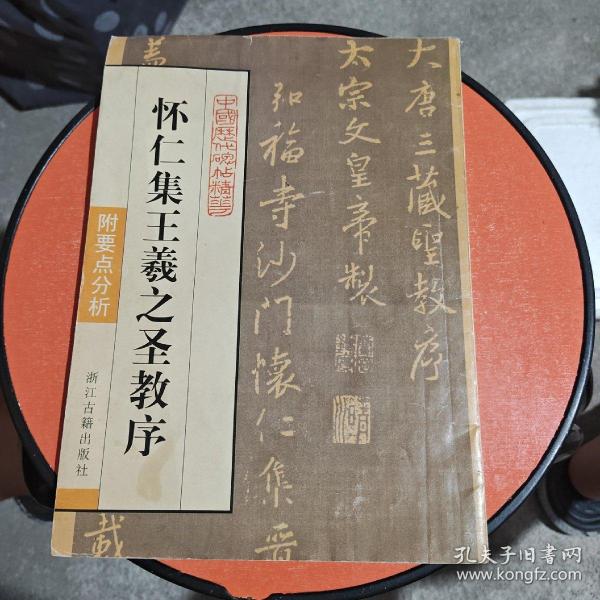 大唐三藏聖教序
太宗文皇帝製
弘福寺沙門懷仁集晋
蓋
載
中國歷代碑帖精華
怀仁集王羲之圣教序
附要点分析
浙江古籍出版社
孔夫子旧书网
www.kongfz.com